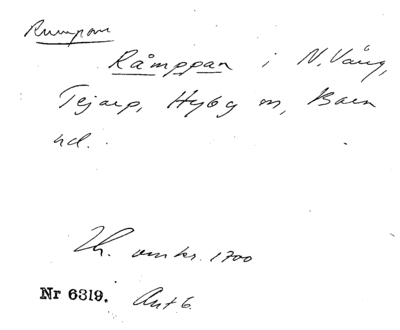 Rumpan
Råmppan i N. Vång,
Tejarp, Hyby sn, Bara
hd.
Th. omkr. 1700
Nr 6319. Ant 6.